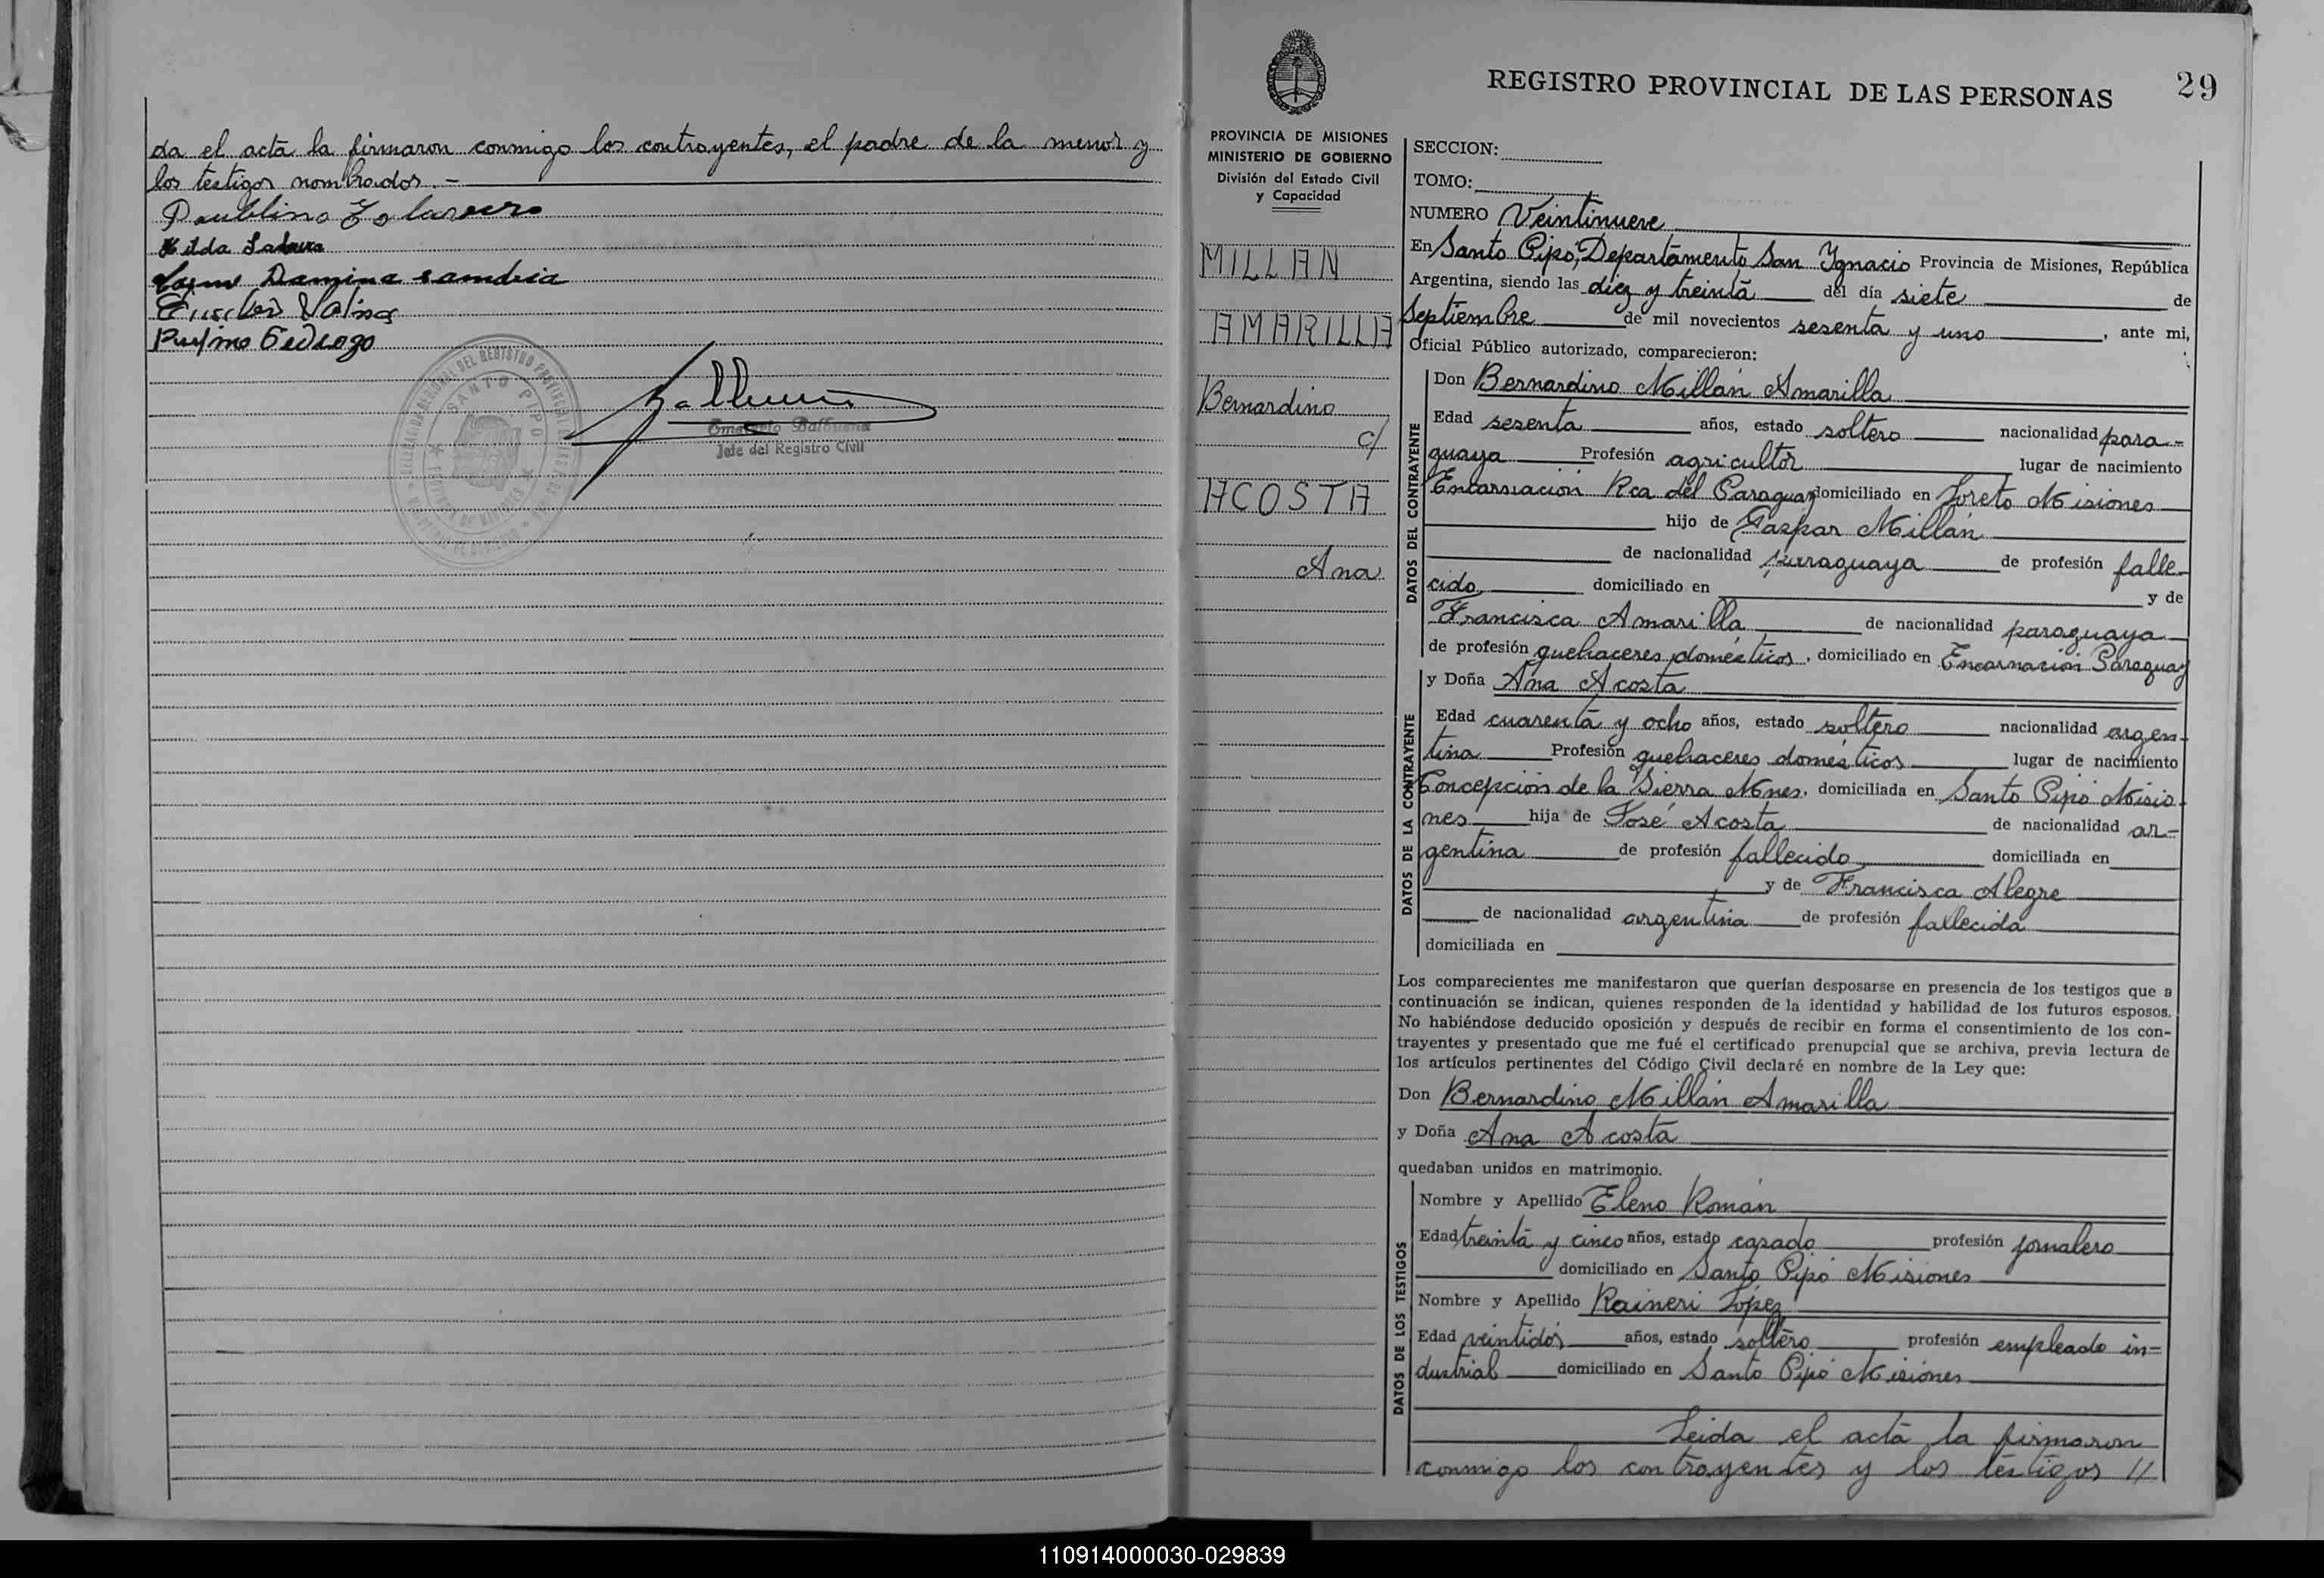 da el acta la firmaron conmigo los contrayentes, el padre de la menor y
los testigos nombrados.-
Paublino
Hilda
Damiana
Rufino Pedrozo
DELEGACION REGIONAL DEL REGISTRO PROVINCIAL DE LAS PERSONAS
SANTO PIPO
PROVINCIA DE MISIONES
MINISTERIO DE GOBIERNO
Balbuena
Emeterio Balbuena
Jefe del Registro Civil
REGISTRO PROVINCIAL DE LAS PERSONAS
29
PROVINCIA DE MISIONES
MINISTERIO DE GOBIERNO
División del Estado Civil
y Capacidad
MILLAN
AMARILLA
Bernardino
c/
ACOSTA
Ana
SECCION:
TOMO:
NUMERO Veintinueve
En Santo Pipó, Departamento San Ygnacio Provincia de Misiones, República
Argentina, siendo las diez y treinta del día siete de
Septiembre de mil novecientos sesenta y uno, ante mi,
Oficial Público autorizado, comparecieron:
DATOS DEL CONTRAYENTE
Don Bernardino Millán Amarilla
Edad sesenta años, estado soltero nacionalidad para-
guaya Profesión agricultor lugar de nacimiento
Encarnación Rca del Paraguay domiciliado en Loreto Misiones
hijo de Gaspar Millán
de nacionalidad paraguaya de profesión falle-
cido domiciliado en y de
Francisca Amarilla de nacionalidad paraguaya
de profesión quehaceres domésticos, domiciliado en Encarnación Paraguay
DATOS DE LA CONTRAYENTE
y Doña Ana Acosta
Edad cuarenta y ocho años, estado soltero nacionalidad argen-
tina Profesión quehaceres domésticos lugar de nacimiento
Concepción de la Sierra Mnes. domiciliada en Santo Pipó Misio-
nes hija de José Acosta de nacionalidad ar-
gentina de profesión fallecido domiciliada en
y de Francisca Alegre
de nacionalidad argentina de profesión fallecida
domiciliada en
Los comparecientes me manifestaron que querían desposarse en presencia de los testigos que a
continuación se indican, quienes responden de la identidad y habilidad de los futuros esposos.
No habiéndose deducido oposición y después de recibir en forma el consentimiento de los con-
trayentes y presentado que me fué el certificado prenupcial que se archiva, previa lectura de
los artículos pertinentes del Código Civil declaré en nombre de la Ley que:
Don Bernardino Millán Amarilla
y Doña Ana Acosta
quedaban unidos en matrimonio.
DATOS DE LOS TESTIGOS
Nombre y Apellido Eleno Román
Edad treinta y cinco años, estado casado profesión jornalero
domiciliado en Santo Pipó Misiones
Nombre y Apellido Raineri López
Edad veintidós años, estado soltero profesión empleado in-
dustrial domiciliado en Santo Pipó Misiones
Leida el acta la firmaron
conmigo los contrayentes y los testigos //
110914000030-029839